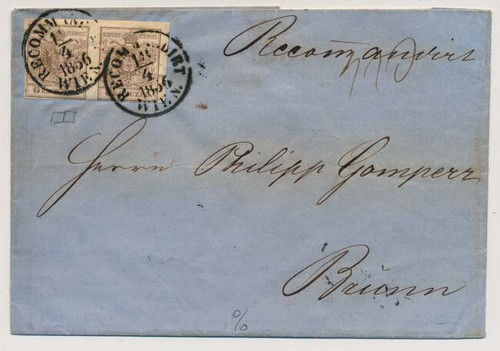 RECOMMANDIRT
4
1856
WIEN.
RECOMMANDIRT
4
1856
WIEN.
Recom̄andirt
Herrn Philipp Gomperz
Brünn
%